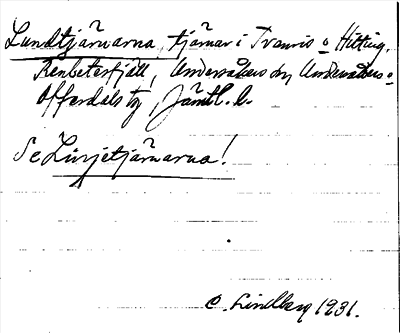 Lundtjärnarna, tjärnar i Tranris o Hitting,
Renbetesfjäll, Undersåkers sn, Undersåkers o
Offerdals tg, Jämtl. l.
Se Lürjetjärnarna!
C. Lindberg 1931.